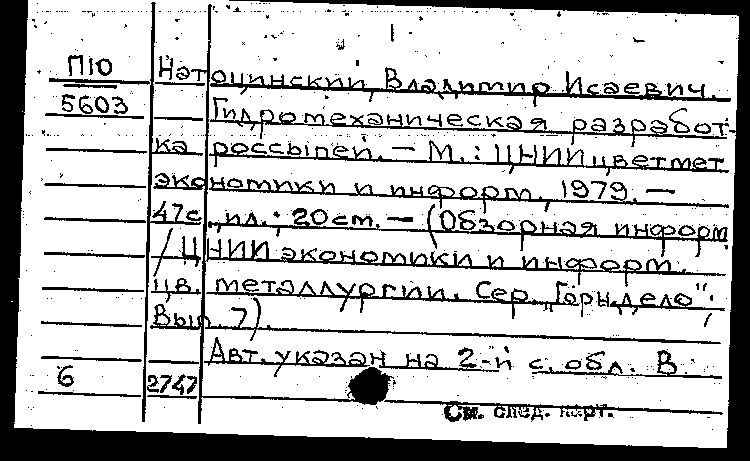 П10
5603
Натоцинский, Владимир Исаевич.
Гидромеханическая разработ-
ка россыпей. — М.: ЦНИИцветмет
экономики и информ., 1979. —
47с., ил.; 20 cm. — (Обзорная информ
/ ЦНИИ экономики и информ.
цв. металлургии. Сер. „Горн. дело";
Вып. 7).
Авт. указан на 2-й с. обл. В
6
2747
См. след. карт.